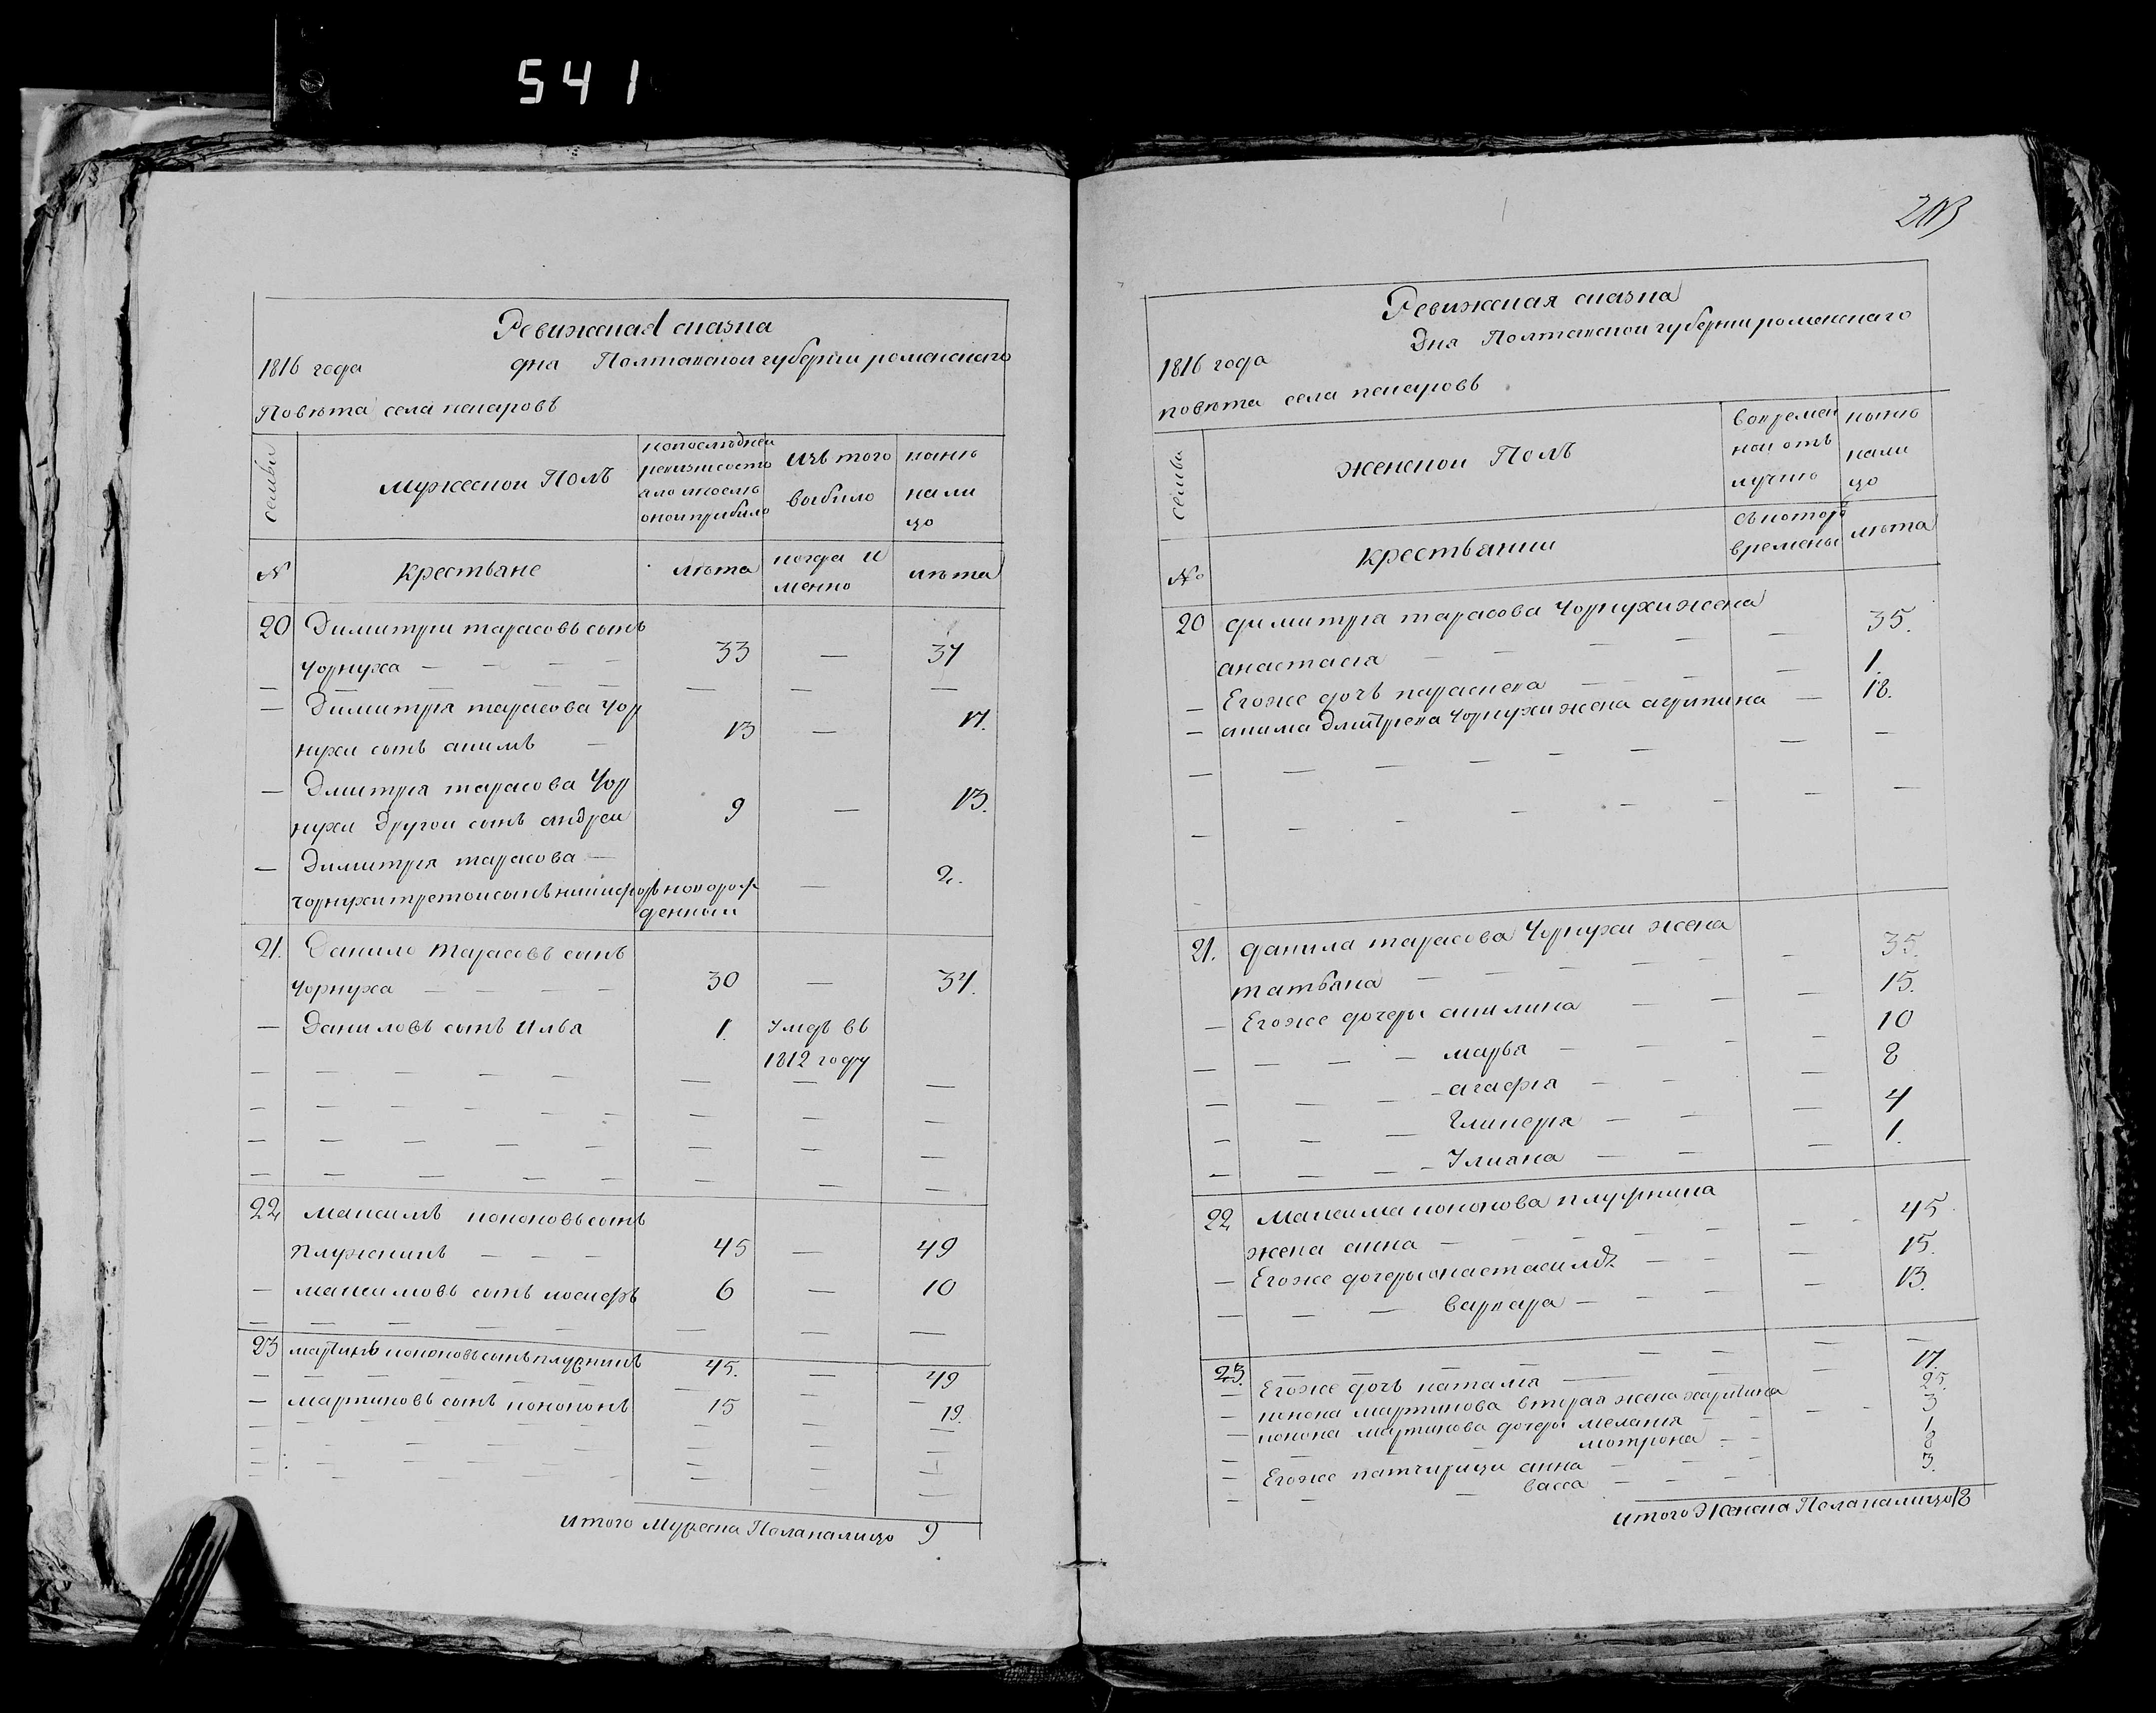 541
Ревижская сказка
1816 года дня Полтавской губернии роменскаго
Повета села пекаровъ
семьи
Мужескои Полъ
попоследней ревизии состояло и после оной прибыло
Изъ того выбило
ныне на лицо
№
Крестьяне
лета
когда именно
лета
20 Димитрии тарасовъ сынъ
Чорнуха — 33 — 37
— Димитрия тарасова Чор
нухи сынъ акимъ 13 — 17.
— Дмитрия тарасова Чор
нухи Другои сынъ андреи 9 — 13.
— Димитрия тарасова
чорнухи третои сынъ никифоръ новорож
денный — 2.
21. Данило Тарасовъ синъ
Чорнуха — 30 — 34.
— Даниловъ сынъ Илья 1. Умре въ
1812 году
22 Максимъ кононовъ сынъ
Плужникъ — 45 — 49
— максимовъ сынъ иосифъ 6 — 10
23 мартинъ кононовъ синъ плужникъ 45. — 49
— мартиновъ сынъ кононъ 15 19.
Итого Мужеска Пола налицо 9
203
Ревижская сказка
1816 года Дня Полтавской губернии роменскаго
повета села пекаровъ
семьи
женскои Полъ
вовременной отлучке
ныне нали цо
№
Крестьянки
съ котораго времены
лета
20 Димитрия тарасова Чорнухи жена
анастасия — 35.
— Егоже дочь параскева — 1.
— акима Дмитриева Чорнухи жена агрипина — 18.
21. Данила тарасова Чорнухи жена
татьяна — 35.
— Егоже дочеры акилина — 15.
— марья — 10
— агафия — 8
— Гликерия — 4
— Улияна — 1.
22 Максима кононова плужника
жена анна — 45
— Егоже дочеры анастасия — 15.
— варвара — 13.
23. Егоже дочь наталия — 17.
— конона мартинова вторая жена харитина 25.
— конона мартинова дочеры мелания 3
— мотрона 1.
— Егоже патчирици анна 8
— васса 3.
итого Женска Пола налицо 18